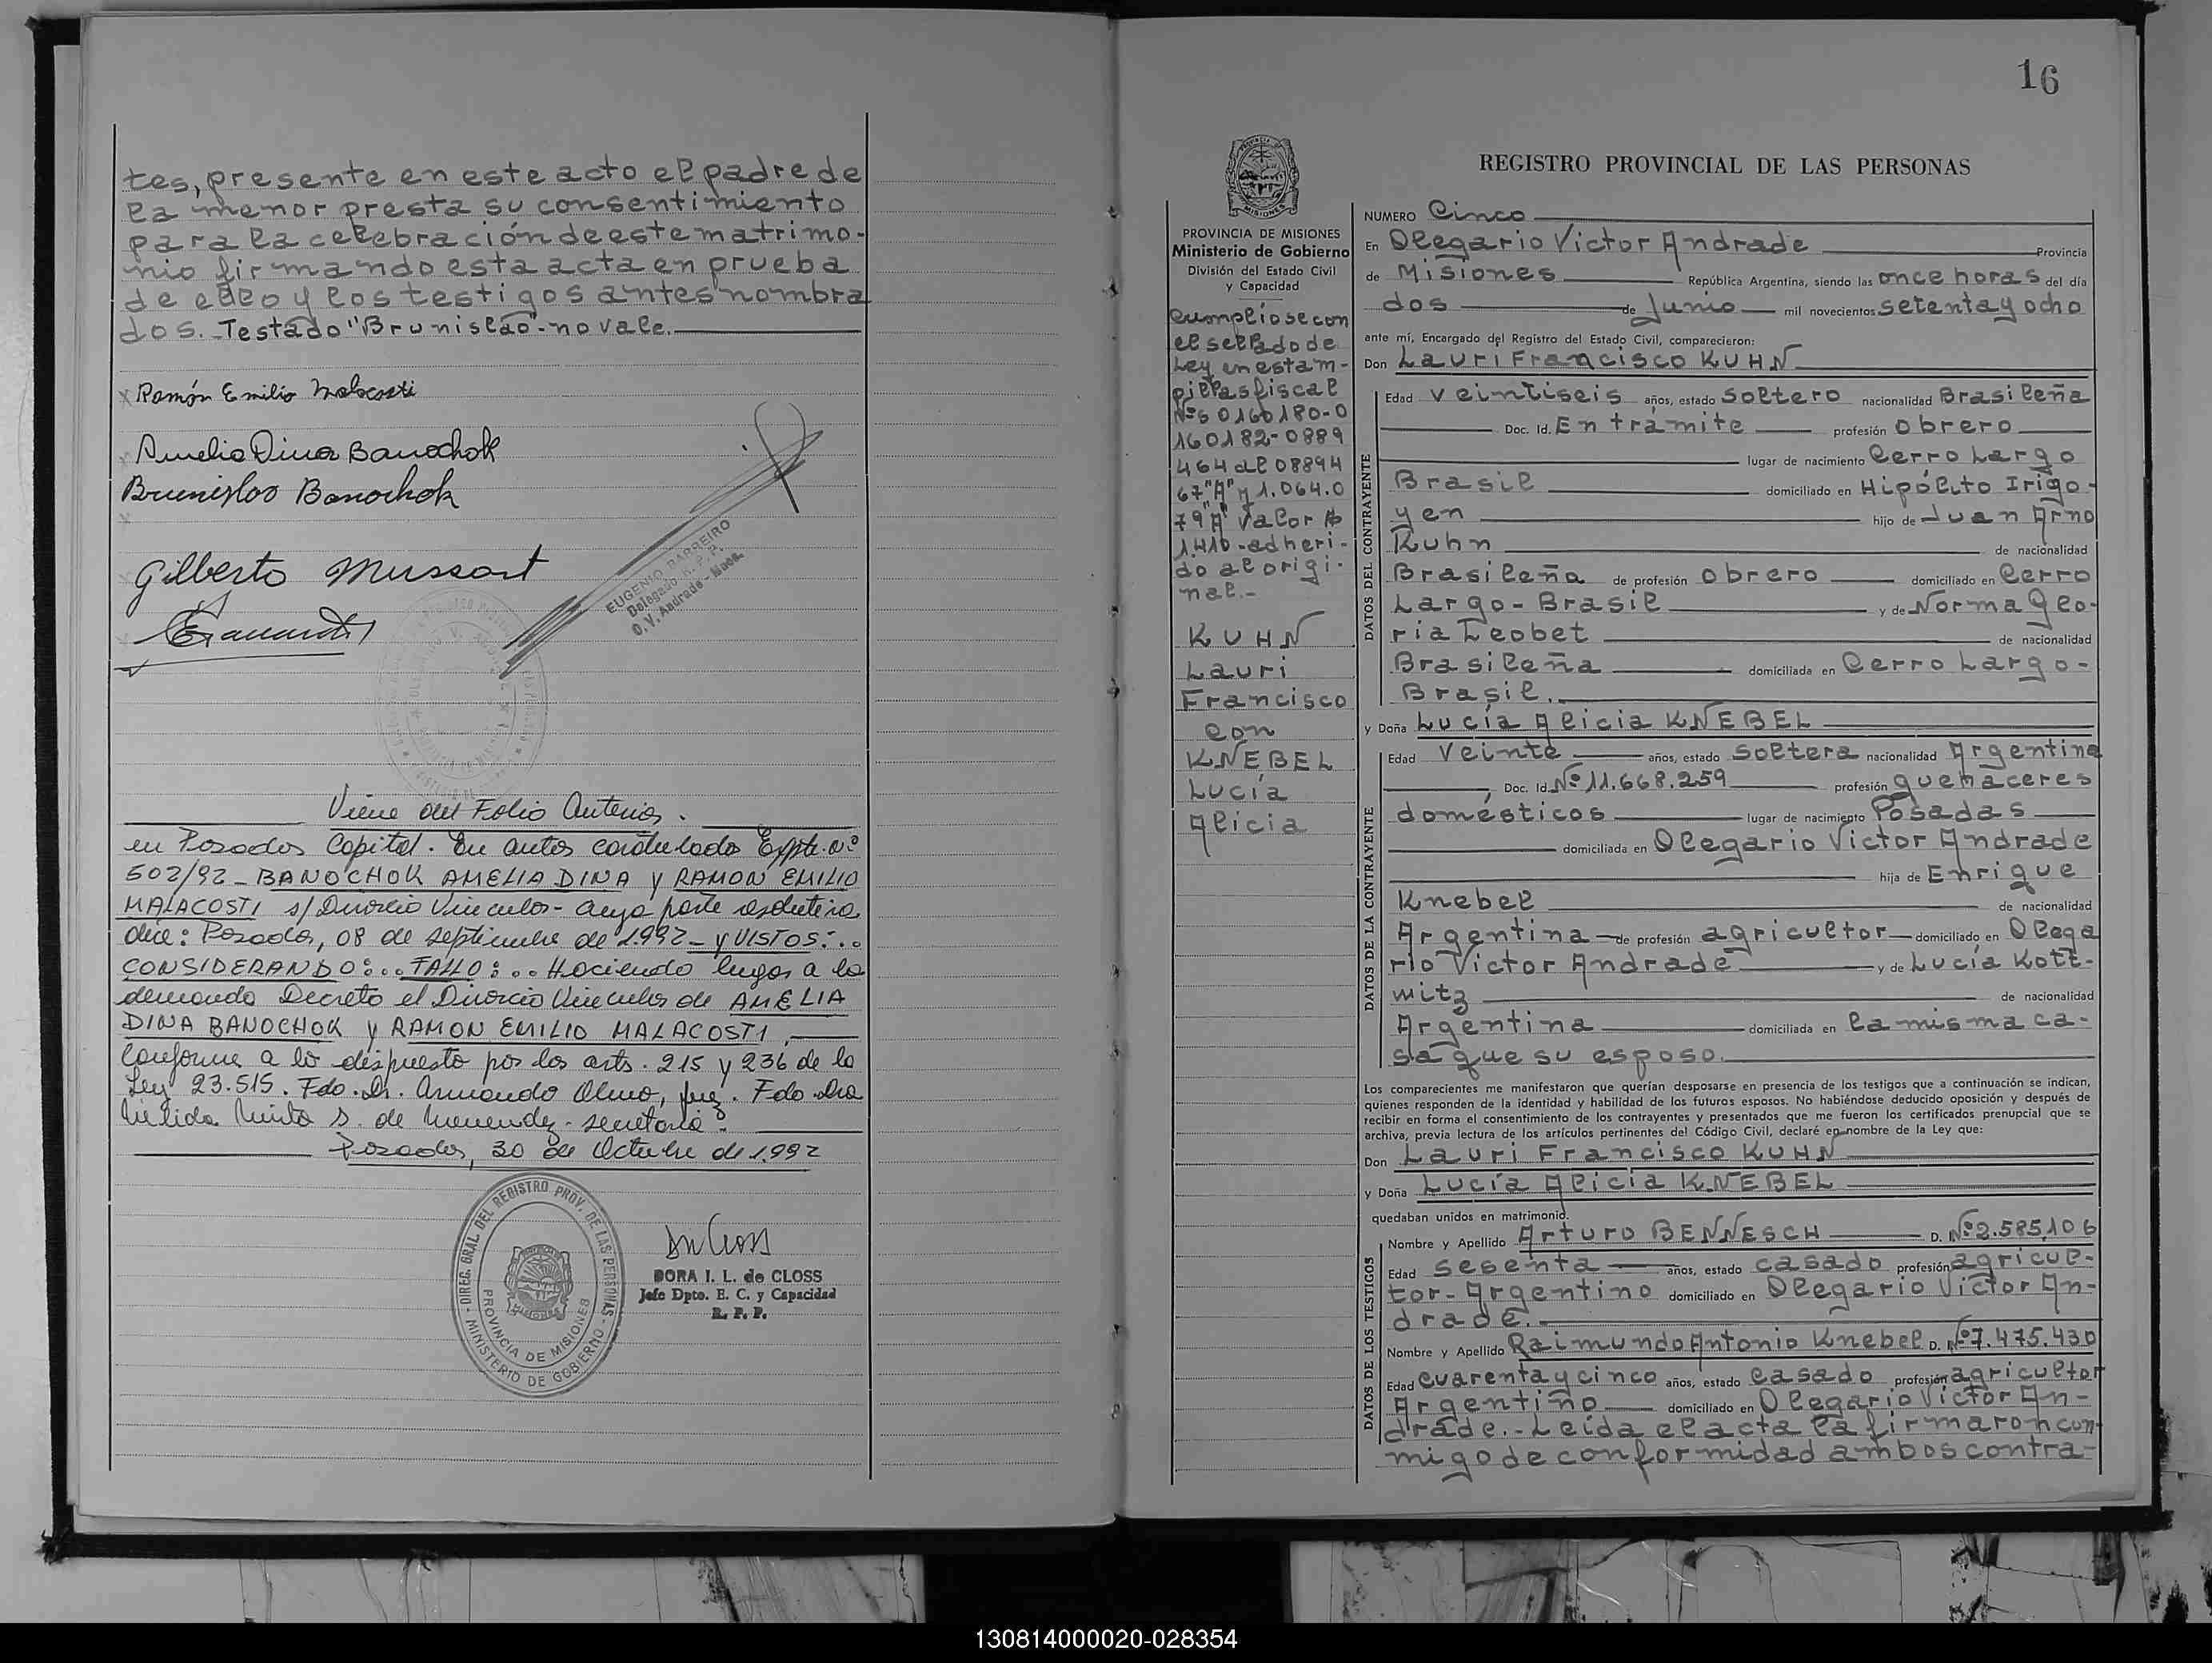 tes, presente en este acto el padre de
la menor presta su consentimiento
para la celebración de este matrimo-
nio firmando esta acta en prueba
de ello y los testigos antes nombra
dos. Testado "Brunislao" - no vale.
Ramón Emilio Malacosti
Amelia Dina Banochok
Brunislao Banochok
Gilberto Mussart
EUGENIO BARREIRO
Delegado R. P. P.
O. V. Andrade - Mnes.
Viene del Folio Anterior.
en Posadas Capital. En autos caratulados Expte. nº
502/92 - BANOCHOK AMELIA DINA y RAMON EMILIO
MALACOSTI s/ Divorcio Vincular - cuya parte resolutiva
dice: Posadas, 08 de septiembre de 1.992 - y VISTOS:..
CONSIDERANDO:.. FALLO:.. Haciendo lugar a la
demanda Decreto el Divorcio Vincular de AMELIA
DINA BANOCHOK y RAMON EMILIO MALACOSTI,
Conforme a lo dispuesto por los arts. 215 y 236 de la
Ley 23.515. Fdo. Dr. Armando Olmo, juez. Fdo. Dra
S. de Menendez - secretaria.
Posadas, 30 de Octubre de 1.992
DIREC. GRAL. DEL REGISTRO PROV. DE LAS PERSONAS
MINISTERIO DE GOBIERNO
PROVINCIA DE MISIONES
DORA I. L. de CLOSS
Jefe Dpto. E. C. y Capacidad
R. P. P.
16
REGISTRO PROVINCIAL DE LAS PERSONAS
PROVINCIA DE MISIONES
Ministerio de Gobierno
División del Estado Civil
y Capacidad
Cumplióse con
el sellado de
Ley en estam-
pillas fiscal
Nºs 0160180-0
160182-0889
464 al 08894
67 "A" y 1.064.0
79 "A" Valor $
1.410 - adheri-
do al origi-
nal.-
KUHN
Lauri
Francisco
con
KNEBEL
Lucía
Alicia
NUMERO Cinco
En Olegario Victor Andrade Provincia
de Misiones República Argentina, siendo las once horas del día
dos de Junio mil novecientos setenta y ocho
ante mí, Encargado del Registro del Estado Civil, comparecieron:
Don Lauri Francisco KUHN
DATOS DEL CONTRAYENTE
Edad veintiseis años, estado soltero nacionalidad Brasileña
Doc. Id. En trámite profesión obrero
lugar de nacimiento Cerro Largo
Brasil domiciliado en Hipólito Irigo-
yen hijo de Juan Arno
Kuhn de nacionalidad
Brasileña de profesión obrero domiciliado en Cerro
Largo - Brasil y de Norma Glo-
ria Leobet de nacionalidad
Brasileña domiciliada en Cerro Largo -
Brasil.
y Doña Lucía Alicia KNEBEL
DATOS DE LA CONTRAYENTE
Edad Veinte años, estado soltera nacionalidad Argentina
Doc. Id. Nº 11.668.259 profesión quehaceres
domésticos lugar de nacimiento Posadas
domiciliada en Olegario Victor Andrade
hija de Enrique
Knebel de nacionalidad
Argentina de profesión agricultor domiciliado en Olega
rio Victor Andrade y de Lucía Kott-
witz de nacionalidad
Argentina domiciliada en la misma ca-
sa que su esposo.
Los comparecientes me manifestaron que querían desposarse en presencia de los testigos que a continuación se indican,
quienes responden de la identidad y habilidad de los futuros esposos. No habiéndose deducido oposición y después de
recibir en forma el consentimiento de los contrayentes y presentados que me fueron los certificados prenupcial que se
archiva, previa lectura de los artículos pertinentes del Código Civil, declaré en nombre de la Ley que:
Don Lauri Francisco KUHN
y Doña Lucía Alicia KNEBEL
quedaban unidos en matrimonio.
DATOS DE LOS TESTIGOS
Nombre y Apellido Arturo BENNESCH D. Nº 2.585.106
Edad sesenta años, estado casado profesión agricul-
tor - Argentino domiciliado en Olegario Victor An-
drade.
Nombre y Apellido Raimundo Antonio Knebel D. Nº 7.475.430
Edad cuarenta y cinco años, estado casado profesión agricultor
Argentino domiciliado en Olegario Victor An-
drade.- Leída el acta la firmaron con
migo de conformidad ambos contra-
130814000020-028354